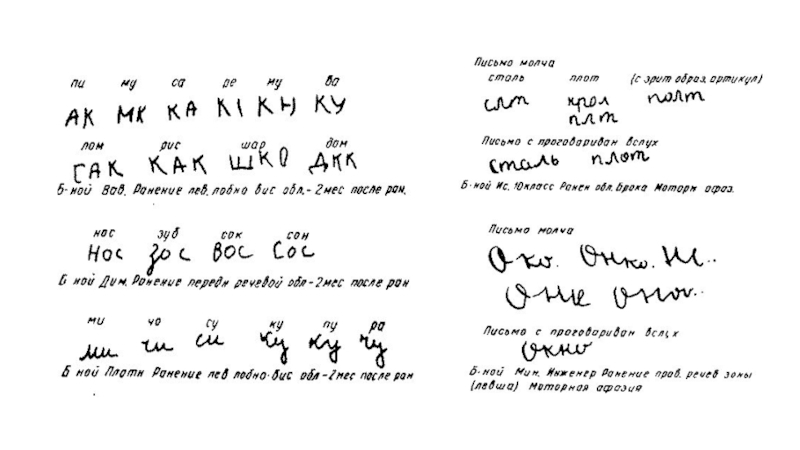 пи му са ре му ва
АК МК КА КІ КН КУ
лом рис шар дом
САК КАК ШКО ДКК
Б-ной Вав. Ранение лев. лобно вис обл.-2мес после ран.
нос зуб сок сон
Нос зос вос Сос
Б ной Дим. Ранение передн речевой обл-2мес после ран
ми чо су ку пу ра
ми чи си ку ку чу
Б ной Платн Ранение лев лобно-вис обл-2мес после ран
Письмо молча
сталь плот (с зрит образ. артикул)
слт крол полт
плт
Письмо с проговариван вслух
сталь плот
Б-ной Ис. 10класс Ранен обл. Брока Моторн афаз.
Письмо молча
Око. Онко. Не..
Оне оно..
Письмо с проговариван вслух
окно
Б-ной Мин. Инженер Ранение прав. речев зоны
(левша) Моторная афазия